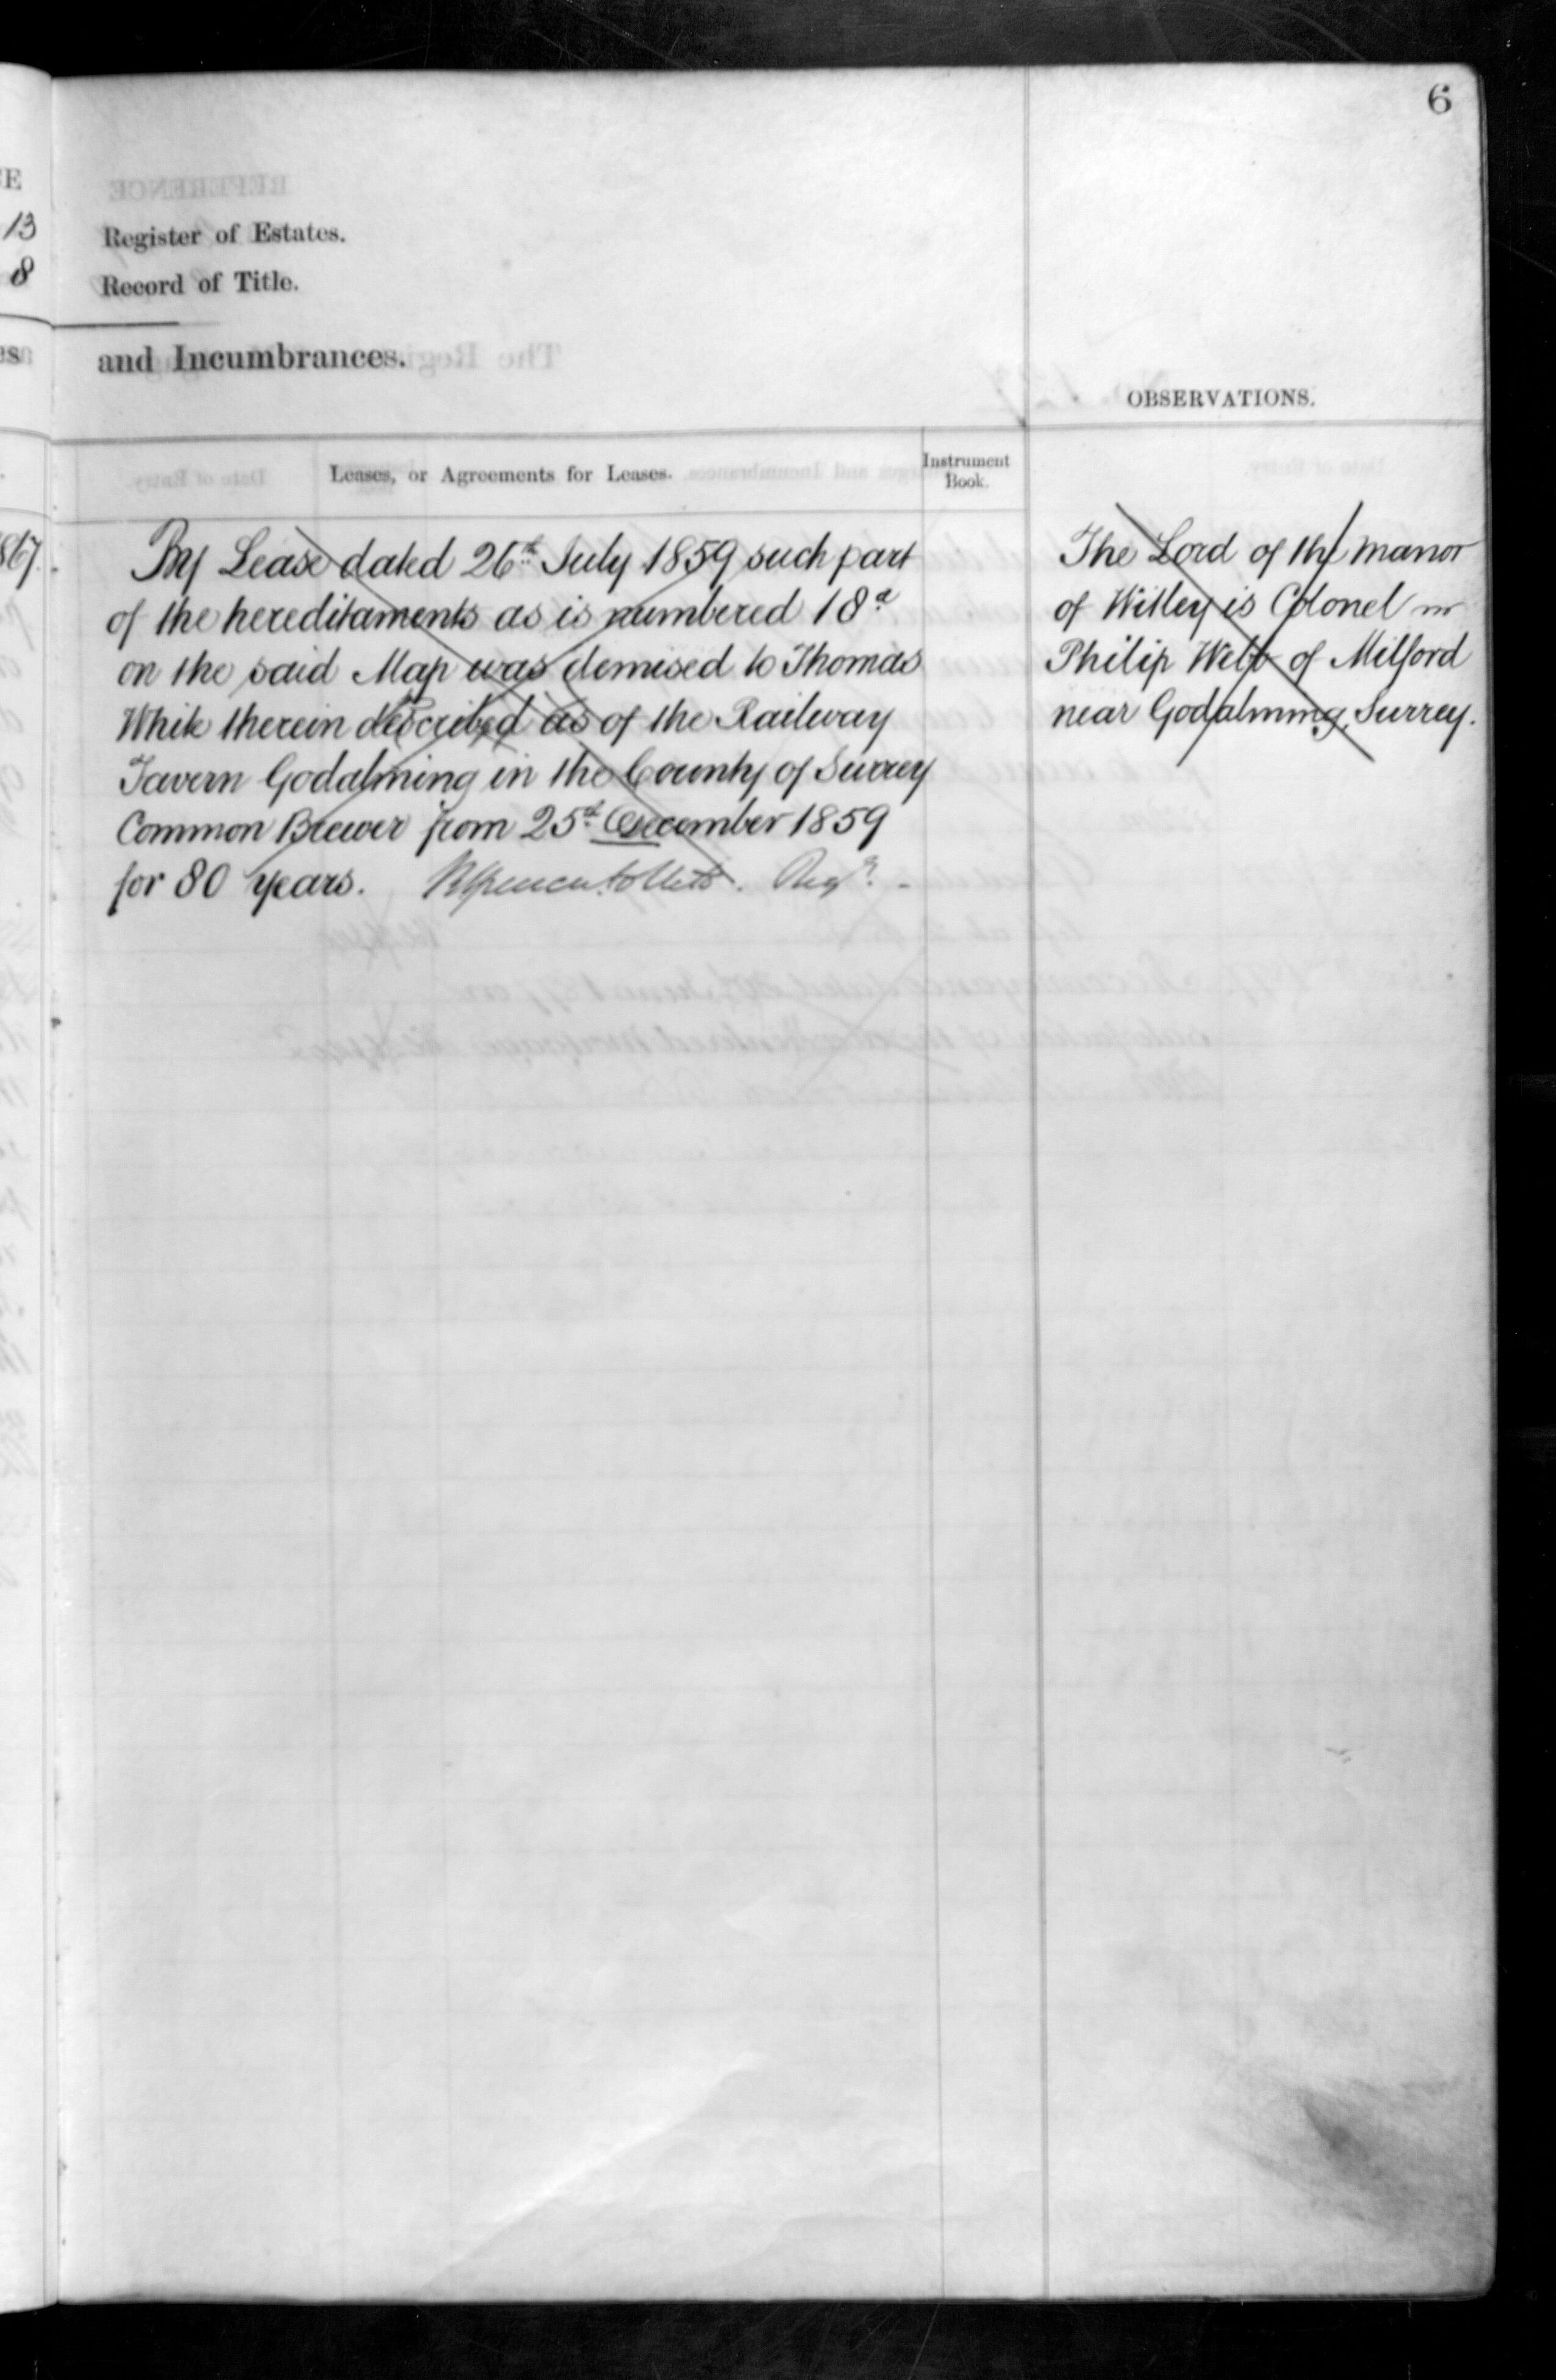 6
E
13
8
Register of Estates.
Record of Title.
and Incumbrances.
OBSERVATIONS.
Leases, or Agreements for Leases.
Instrument
Book.
867.
By Lease dated 26th July 1859 such part
of the hereditaments as is numbered 18a
on the said Map was demised to Thomas
White therein described as of the Railway
Tavern Godalming in the County of Surrey
Common Brewer from 25th December 1859
for 80 years. Regr.
The Lord of the Manor
of Witley is Colonel
Philip Webb of Milford
near Godalming, Surrey.